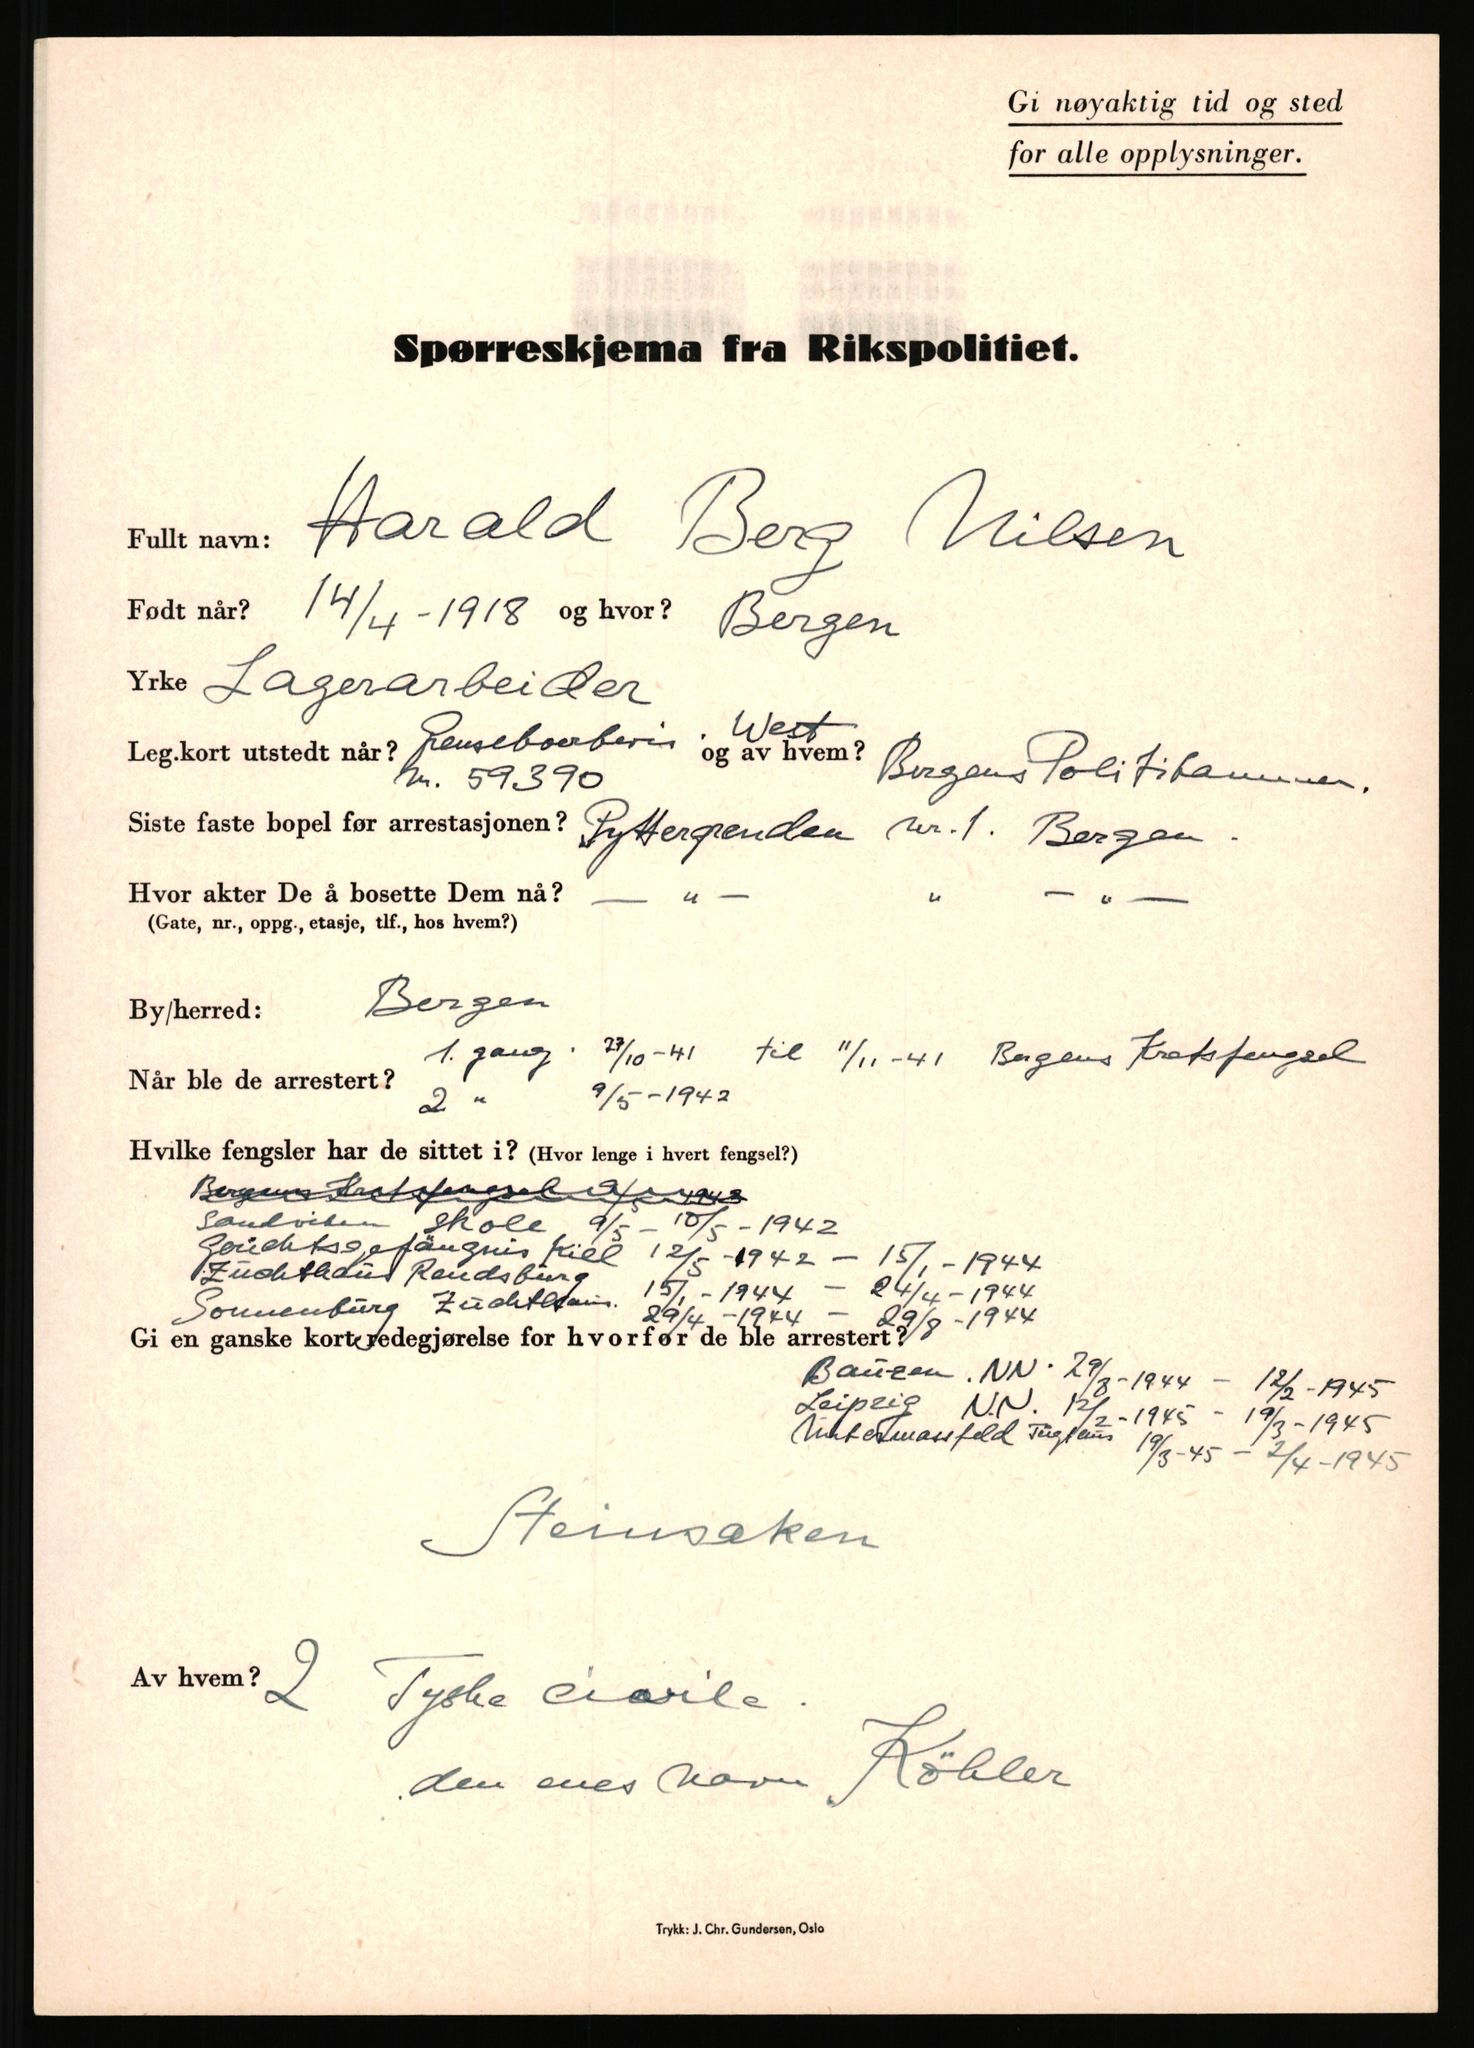 Gi nøyaktig tid og sted
for alle opplysninger.
Spørreskjema fra Rikspolitiet.
Fullt navn: Harald Berg Nilsen
Født når? 14/4-1918 og hvor? Bergen
Yrke Lagerarbeider
Leg.kort utstedt når? Grenseboerbevis. West og av hvem? Bergens Politikammer.
Nr. 59390
Siste faste bopel før arrestasjonen? Pyttergrenden nr. 1. Bergen.
Hvor akter De å bosette Dem nå? — " — " — " —
(Gate, nr., oppg., etasje, tlf., hos hvem?)
By/herred: Bergen
1. gang. 27/10-41 til 11/11-41 Bergens Kretsfengsel
Når ble de arrestert?
2 " 9/5-1942
Hvilke fengsler har de sittet i? (Hvor lenge i hvert fengsel?)
Bergens Kretsfengsel 9/5 1942
Sandviken skole 9/5 - 10/5-1942
Gerichtsgefängnis Kiel 12/5-1942 - 15/1-1944
Zuchthaus Rendsbürg 15/1-1944 - 24/4-1944
Sonnenbürg Züchthaus. 29/4-1944 - 29/8-1944
Gi en ganske kort redegjørelse for hvorfor de ble arrestert?
Baüzen. NN. 29/8-1944 - 12/2-1945
Leipzig N.N. 12/2-1945 - 19/3-1945
Untermassfeld Tugthus 19/3-45 - 2/4-1945
Steinsaken
Av hvem? 2 Tyske civile.
den enes navn Köhler
Trykk: J. Chr. Gundersen, Oslo